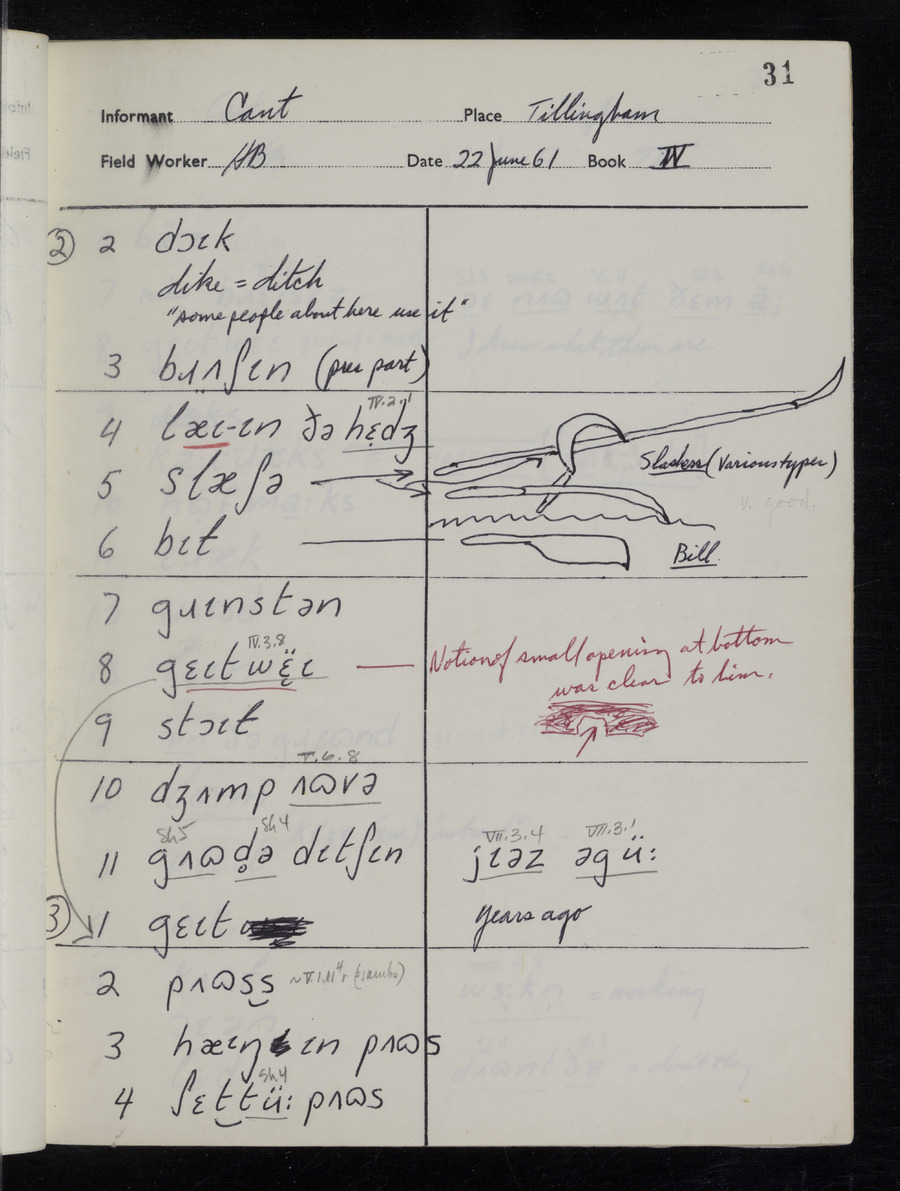 31
Informant Cant Place Tillingham
Field Worker HB Date 22 June 61 Book IV
② 2 dɔɪk
dike = ditch
"some people about here use it"
3 (pres part)
IV.2.1
4 læɪ-ɪn ðə hẹdʒ
Slashers (Various types)
v. good.
5 slæʃə
6 bɪl
Bill
7 gɹɪnstən
IV.3.8
8 Notion of small opening at bottom
was clear to him.
9 stɔɪl
V.6.8
10 dʒʌmp ʌɷvə
Sh5 Sh4 VII.3.4 VII.3.1
11 gʌɷ də̥ dɪtʃɪn jɪəz əgü:
years ago
③ 1 gɛɪt
2 pʌɷs
3 hæɪŋ ɪn pʌɷs
Sh4
4 ʃɛt tü: pʌɷs